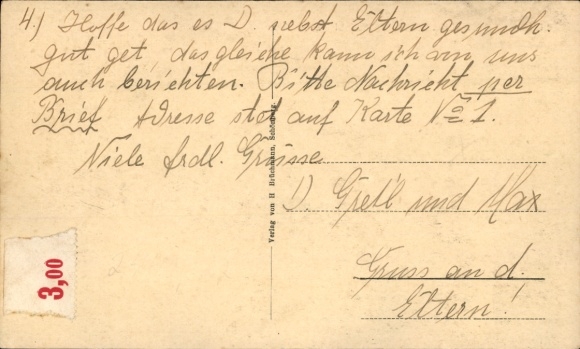 4.) Hoffe das es D. nebst Eltern gesundh.
gut get, dasgleiche kann ich von uns
auch berichten. Bitte Nachricht per
Brief Adresse stet auf Karte No 1.
Viele frdl. Grüsse
D. Gretl und Max
Gruss an d.
Eltern!
Verlag von H Brüchmann, Schönberg.
3,00